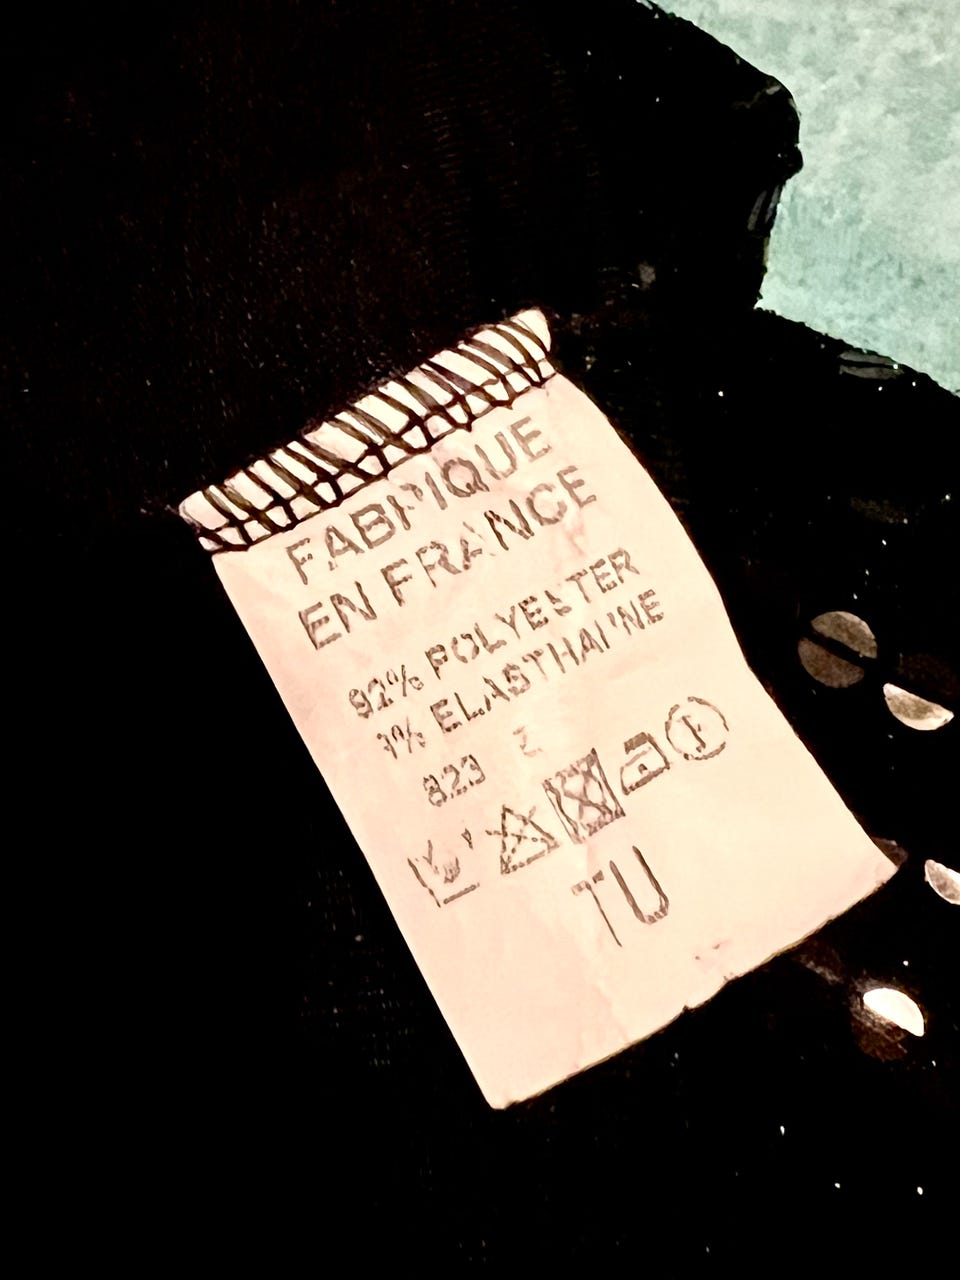 FABRIQUE
EN FRANCE
92% POLYESTER
ELASTHANNE
823
TU